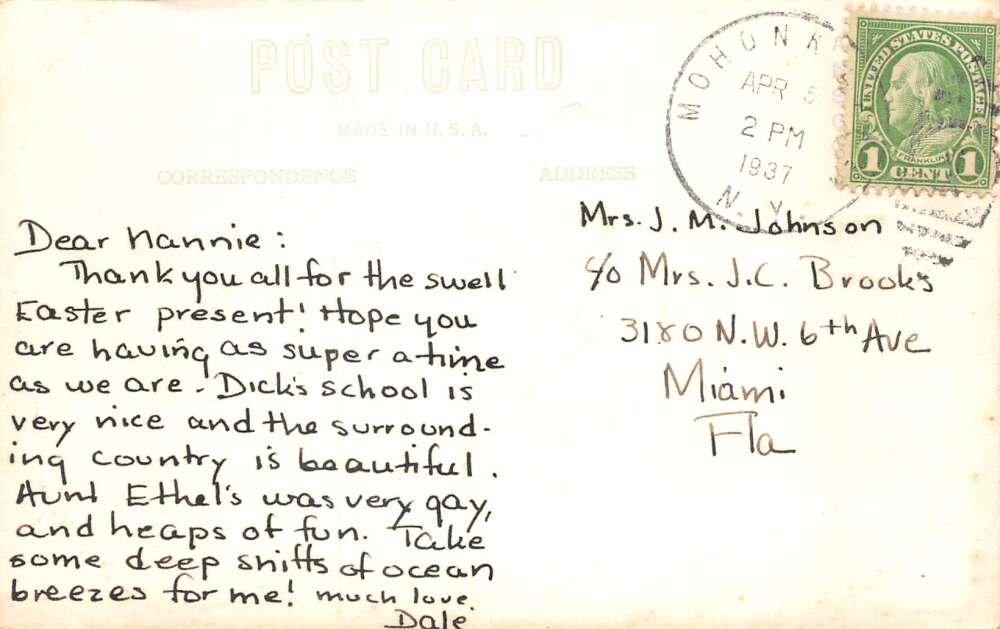 POST CARD
MADE IN U.S.A.
CORRESPONDENCE
ADDRESS
MOHONK
APR 5
2 PM
1937
N.Y.
UNITED STATES POSTAGE
FRANKLIN
1 CENT 1
Dear Nannie:
Thank you all for the swell
Easter present! Hope you
are having as super a time
as we are. Dick's school is
very nice and the surround-
ing country is beautiful.
Aunt Ethel's was very gay,
and heaps of fun. Take
some deep sniffs of ocean
breezes for me! much love.
Dale
Mrs. J. M. Johnson
c/o Mrs. J.C. Brooks
3180 N.W. 6th Ave
Miami
Fla